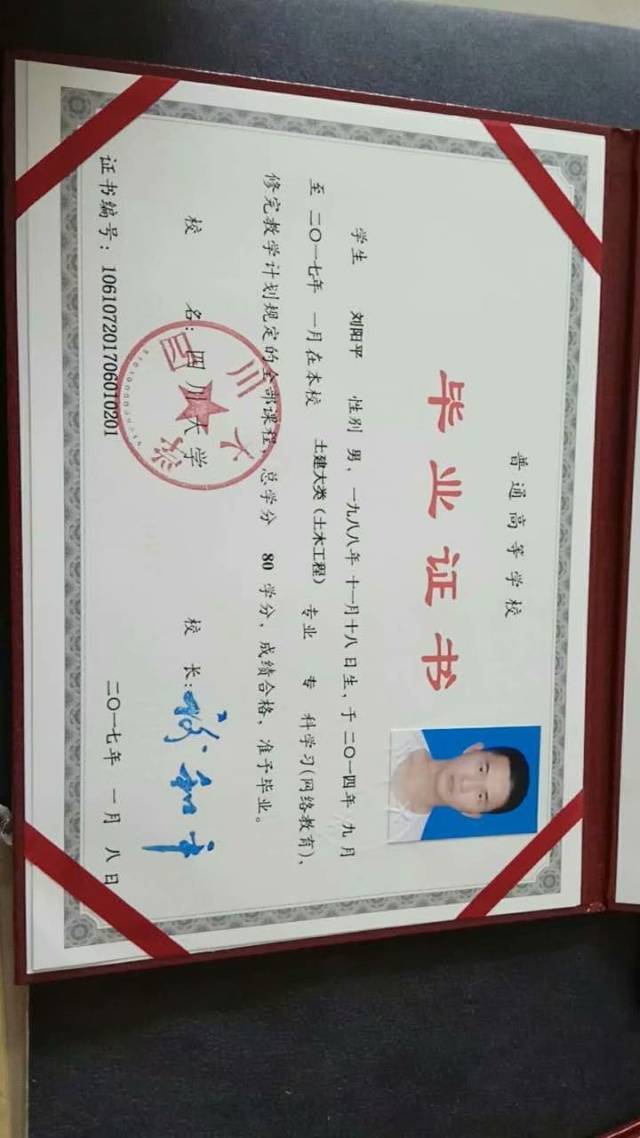 普通高等学校
毕业证书
学生 刘阳平 性别 男，一九八八年 十一月十八日生，于二〇一四年 九月
至 二〇一七年 一月在本校 土建大类（土木工程） 专业 专 科学习(网络教育)，
修完教学计划规定的全部课程，总学分 80 学分，成绩合格，准予毕业。
校 名：四川大学 校 长：
证书编号：106107201706010201 二〇一七年 一月 八日
四川大学